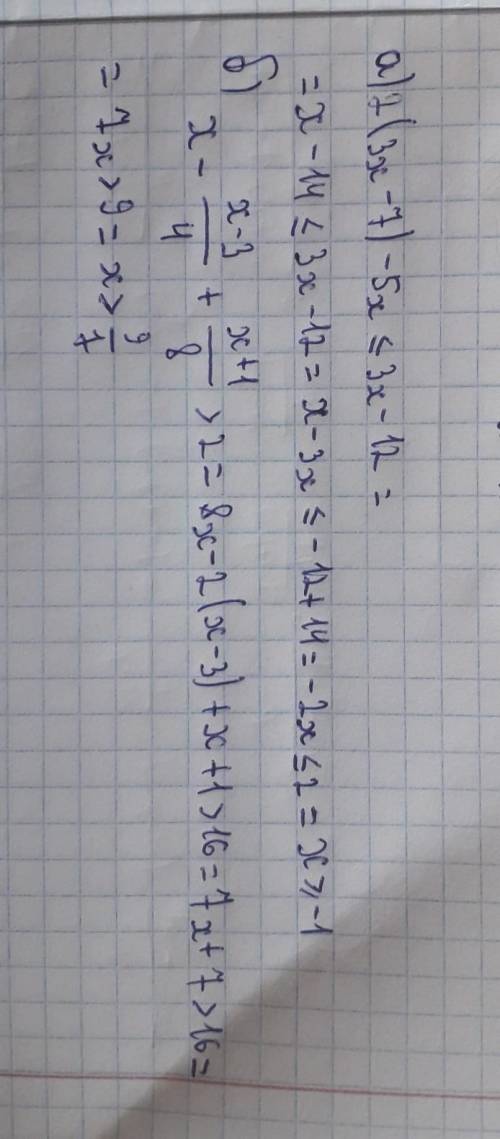 а) 7(3x-7)-5x ≤ 3x-12 =
= x-14 ≤ 3x-12 = x-3x ≤ -12+14 = -2x ≤ 2 = x ≥ -1
б) x - \frac{x-3}{4} + \frac{x+1}{8} > 2 = 8x-2(x-3)+x+1 > 16 = 7x+7 > 16 =
= 7x > 9 = x > \frac{9}{7}